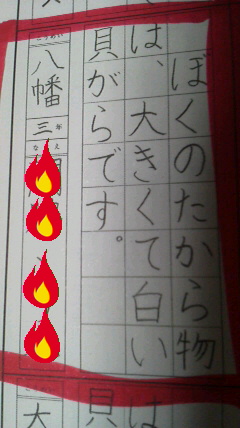 ぼくのたから物
は、大きくて白い
貝がらです。
八幡 三年
なまえ
は
貝
大